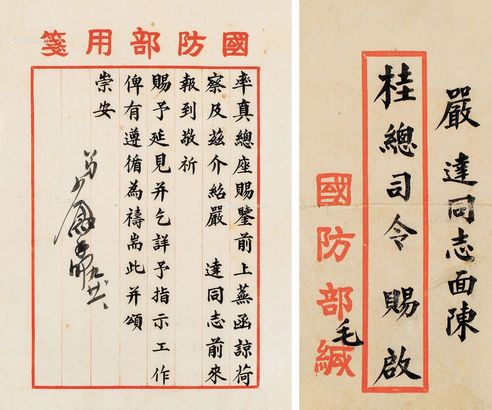 國防部用箋
率真總座賜鑒前上蕪函諒荷
察及茲介紹嚴 達同志前來
報到敬祈
賜予延見并乞詳予指示工作
俾有遵循為禱耑此并頌
崇安
弟
九廿六
嚴達同志面陳
桂總司令賜啟
國防部緘
毛